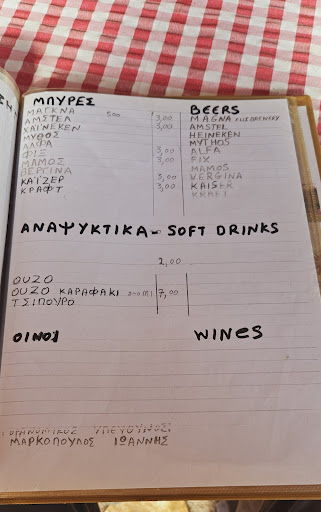 ΜΠΥΡΕΣ BEERS
ΜΑΓΚΝΑ 500 MAGNA
ΑΜΣΤΕΛ 3,00 AMSTEL
ΧΑΙΝΕΚΕΝ 3,00 HEINEKEN
ΜΥΘΟΣ MYTHOS
ΑΛΦΑ 3,00 ALFA
ΦΙΞ 3,00 FIX
ΜΑΜΟΣ MAMOS
ΒΕΡΓΙΝΑ 3,00 VERGINA
ΚΑΪΖΕΡ 3,00 KAISER
ΚΡΑΦΤ KRAFT
ΑΝΑΨΥΚΤΙΚΑ - SOFT DRINKS
2,00
ΟΥΖΟ
ΟΥΖΟ ΚΑΡΑΦΑΚΙ 200ml 7,00
ΤΣΙΠΟΥΡΟ
ΟΙΝΟΙ WINES
ΑΓΟΡΑΝΟΜΙΚΟΣ ΥΠΕΥΘΥΝΟΣ:
ΜΑΡΚΟΠΟΥΛΟΣ ΙΩΑΝΝΗΣ